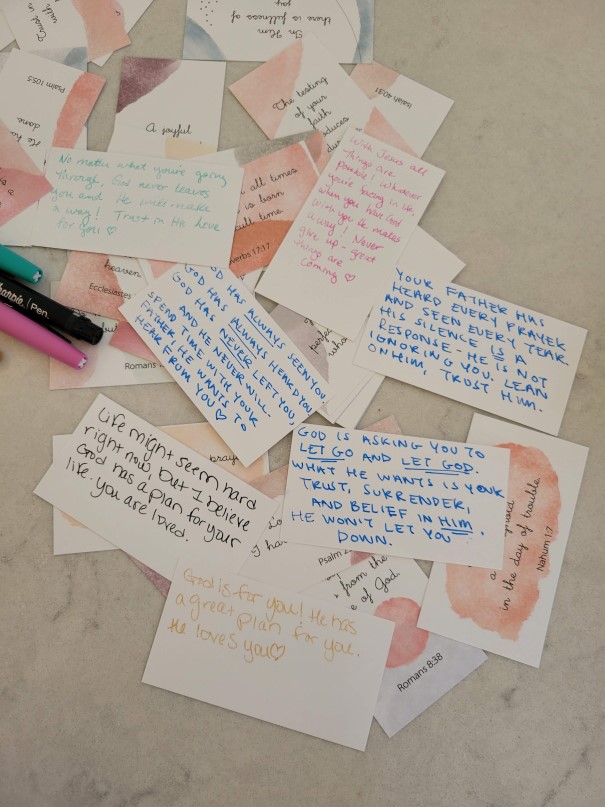 In Him
there is fullness of
joy
Trust in
with
Psalm 105:5
done.
The testing
of your
faith
Isaiah 40:31
A joyful
No matter what you're going
through, God never leaves
you and He will make
a way! Trust in He love
for you ♡
all times
is born
verbs 17:17
With Jesus all
things are
possible! Whatever
you're facing in life,
when you have God
with you He makes
a way! Never
give up - great
things are
coming ♡
heaven.
Ecclesiastes
Sharpie Pen.
Romans
GOD HAS ALWAYS SEEN YOU,
GOD HAS ALWAYS HEARD YOU,
GOD HAS NEVER LEFT YOU,
AND HE NEVER WILL.
SPEND TIME WITH YOUR
FATHER, HE WANTS TO
HEAR FROM YOU ♡
YOUR FATHER HAS
HEARD EVERY PRAYER
AND SEEN EVERY TEAR.
HIS SILENCE IS A
RESPONSE - HE IS NOT
IGNORING YOU. LEAN
ON HIM, TRUST HIM.
Life might seem hard
right now, but I believe
God has a plan for your
life. You are loved.
GOD IS ASKING YOU TO
LET GO AND LET GOD.
WHAT HE WANTS IS YOUR
TRUST, SURRENDER,
AND BELIEF IN HIM.
HE WON'T LET YOU
DOWN.
in the day of trouble
Nahum 1:7
Psalm
from the
e of God.
Romans 8:38
God is for you! He has
a great plan for you.
He loves you♡